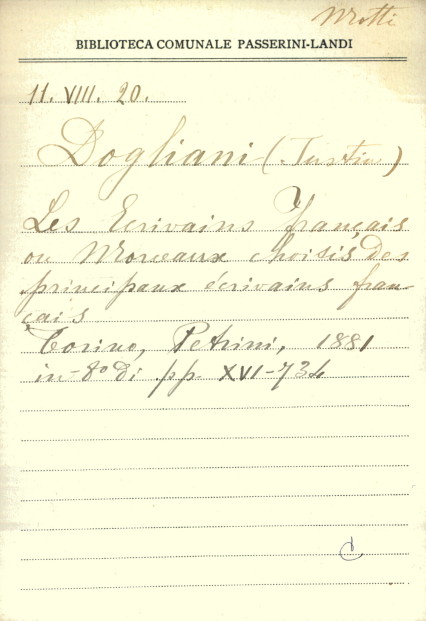 BIBLIOTECA COMUNALE PASSERINI-LANDI
11. VIII. 20.
Dogliani (Justin)
Les Ecrivains français
ou Morceaux choisis des
principaux écrivains fran-
çais
Torino, Petrini, 1881
in-8º di pp. XVI-734
C